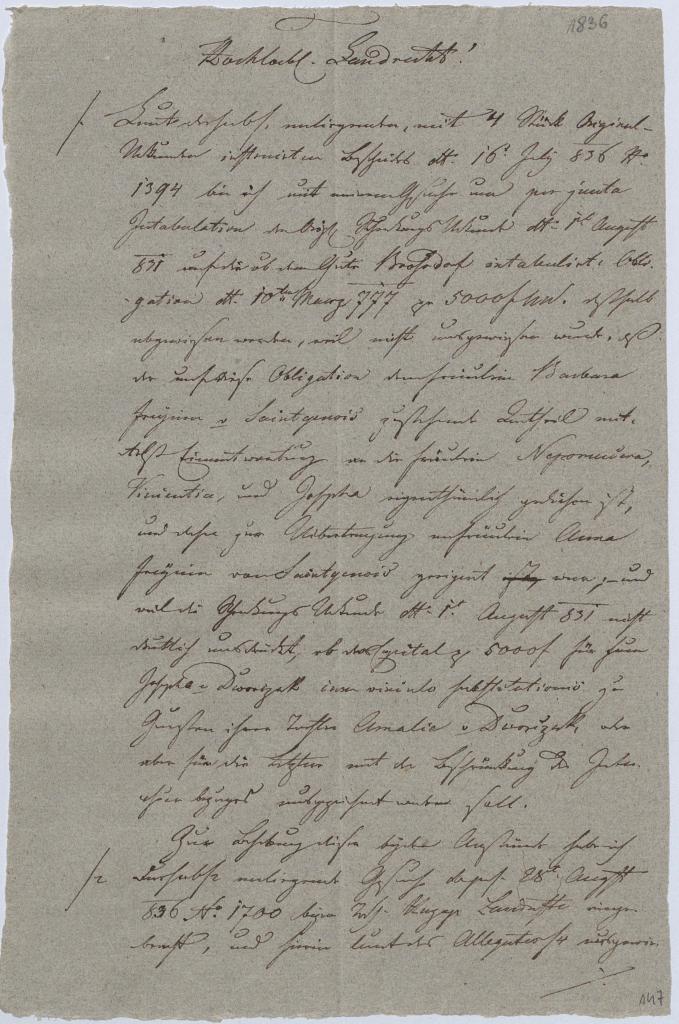 1836
Hochlöbl. Landrecht!
/. Laut des sub /. anliegenden, mit 4 Stück Original-
Urkunden instruirten Bescheides dtt. 16t July 836 No.
1394 bin ich mit meinem Gesuche um per juncta
Intabulation der Orgl. Schenkungs Urkunde dtt. 1t August
831 auf die ob dem Gute intabulirte Obli-
gation dtt. 10ten Maerz 777 pr 5000 f deßhalb
abgewiesen worden, weil nicht ausgewiesen wurde, daß
der auf diese Obligation dem Fräulein Barbara
Freyinn v Saintgenois zustehende Antheil mit-
telst Einantwortung an die Fräulein Nepomucena,
Vincentia, und Josepha eigenthümlich gediehen ist,
und daher zur Uibertragung an Fräulein Anna
Freyinn von Saintgenois geeignet war, und
weil die Schenkungs Urkunde dtt. 1t. August 831 nicht
deutlich ausdrückt, ob das Capital pr 5000 f für Frau
Josepha v Dworzak cum vinculo substitutionis zu
Gunsten ihrer Tochter Amalie v Dworzak, oder
aber für die Letztere mit der Beschränkung des Inter-
essen bezuges ausgezeichnet werden soll.
Zur Behebung dieser beyden Anstände habe ich
/2 das sub /2 anliegende Gesuch de praes. 28t August
836 No 1700 beym Landrechte einge-
bracht, und hierin laut des Allegates /4 ausgewie-
./.
147